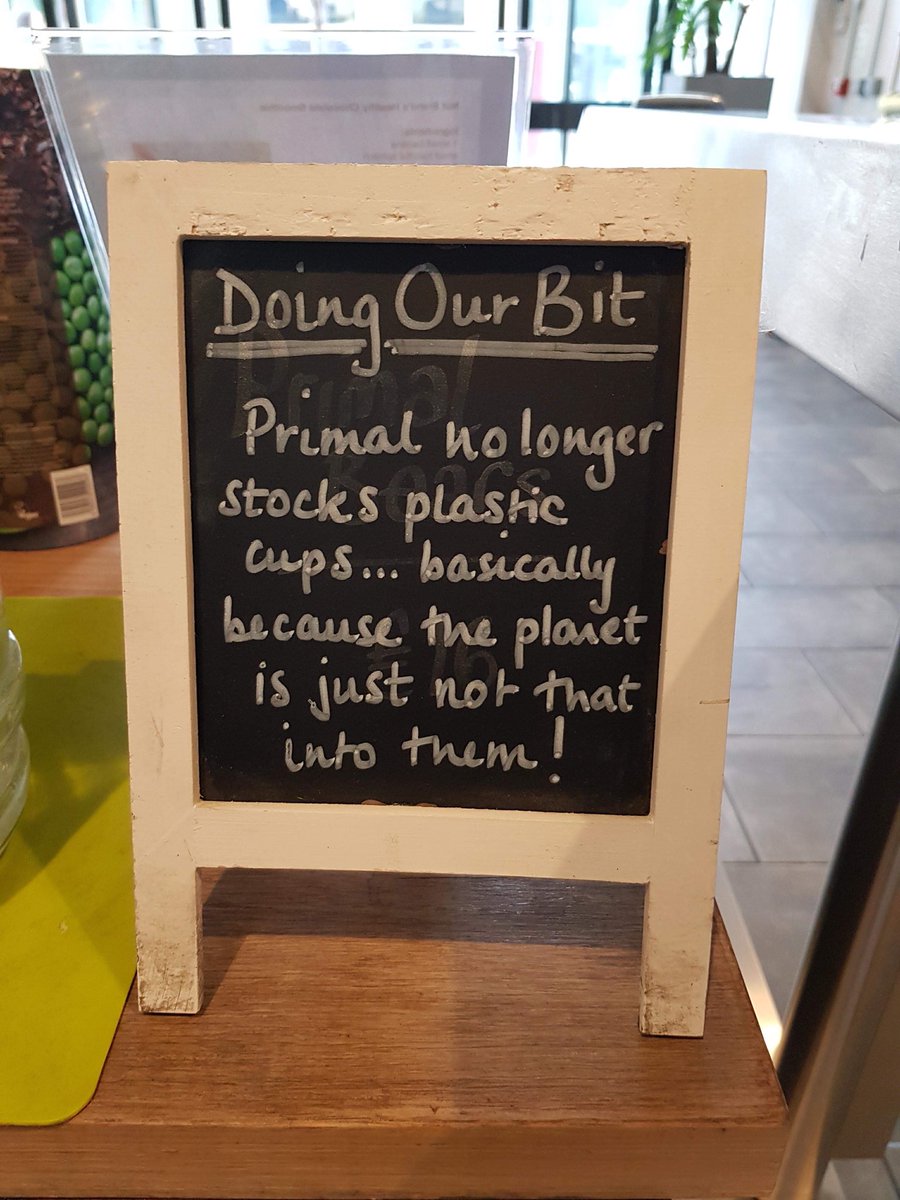 Doing Our Bit
Primal no longer
stocks plastic
cups... basically
because the planet
is just not that
into them!
Primal